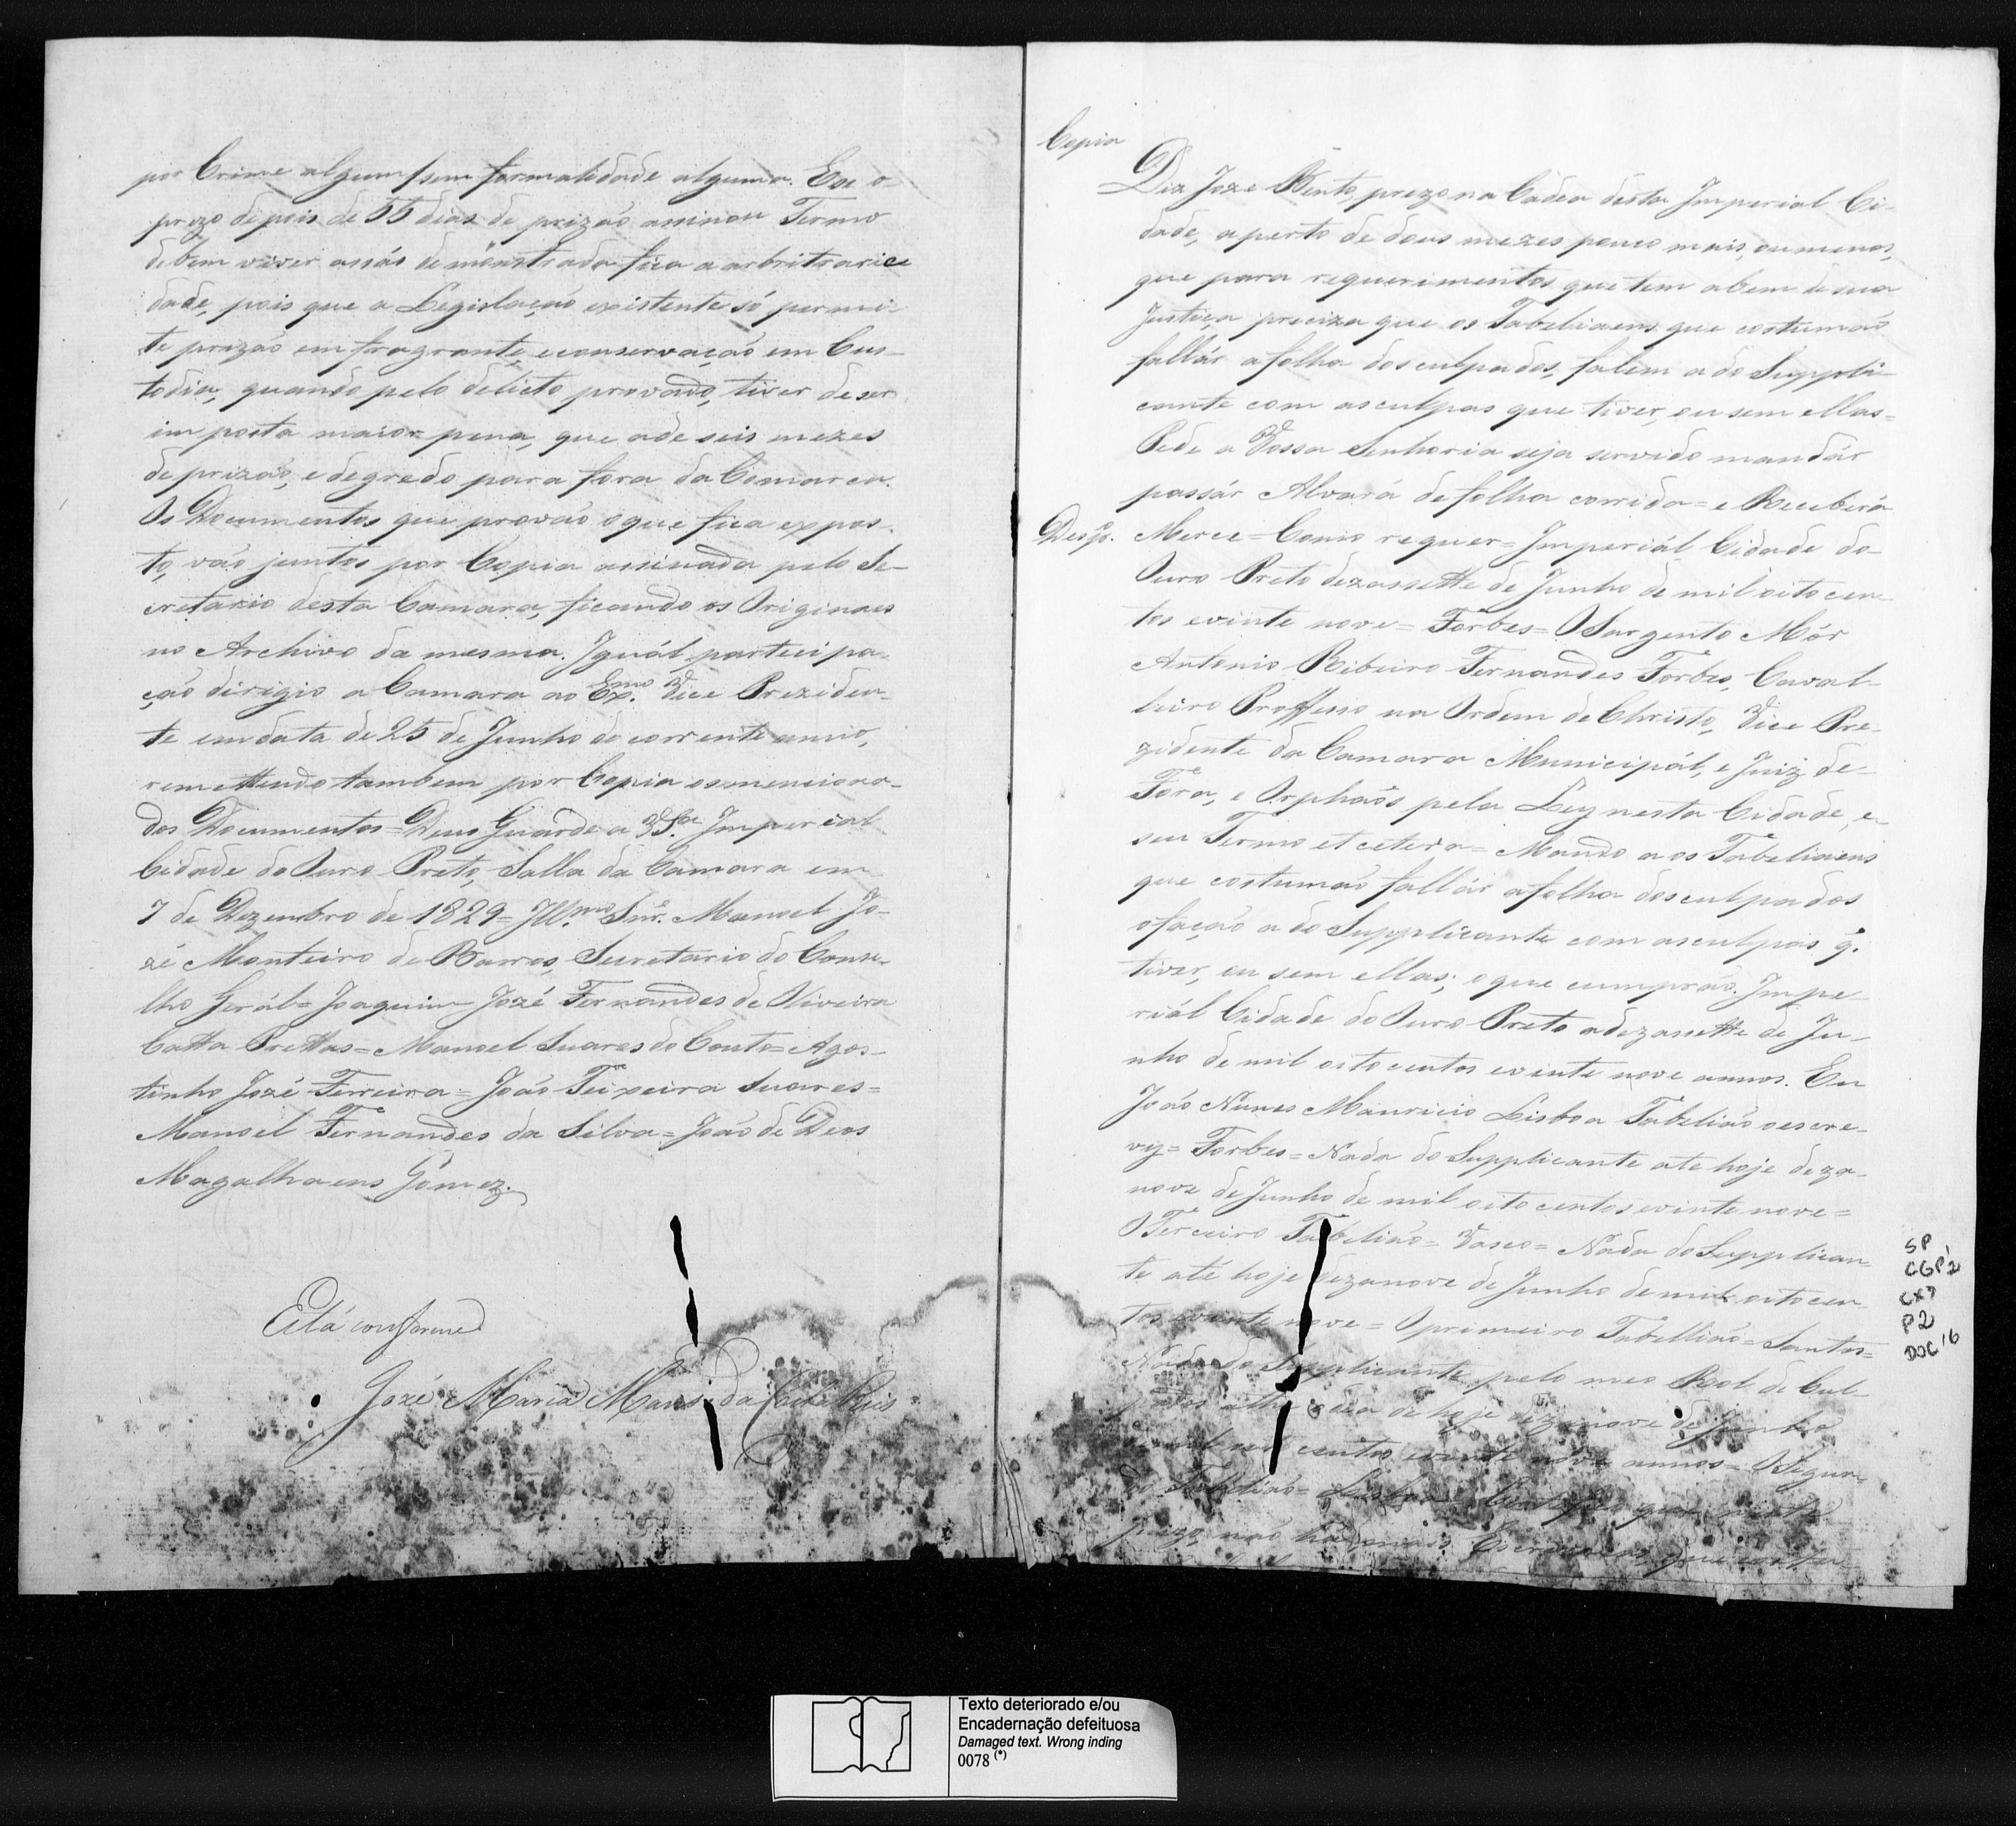 por Crime algum / sem formalidade alguma. E se o
prezo depois de 55 dias de prizaõ assinou Termo
de bem viver assás demonstrada fica a arbitrarie
dade, pois que a Legislaçaõ existente só permi-
te prizaõ em fragrante, e conservaçaõ em Cus-
todia, quando pelo delicto provado, tiver de ser
imposta maior pena, que a de seis mezes
de prizaõ, e degredo para fora da Comarca.
Os Documentos que provaõ o que fica expos-
to, vaõ juntos por Copia assinada pelo Se-
cretario desta Camara, ficando os Originaes
no Archivo da mesma. Iguál participa-
çaõ dirigio a Camara ao Exmo. Vice Preziden-
te em data de 25 de Junho do corrente anno,
remettendo tambem por Copia os menciona-
dos Documentos = Deus Guarde a VSra. Imperial
Cidade do Ouro Preto, Salla da Camara em
7 de Dezembro de 1829 = Illmo. Snr. Manoel Jo-
zé Monteiro de Barros, Secretario do Conse-
lho Gerál = Joaquim Jozé Fernandes de Oliveira
Catta Prettas = Manoel Soares do Couto = Agos-
tinho Jozé Ferreira = Joaõ Teixeira Soares =
Manoel Fernandes da Silva = Joaõ de Deos
Magalhaens Gomez.
Está conforme
Jozé Maria da Reis
Copia
Diz Joze Bento, prezo na Cadea desta Imperial Ci-
dade, a perto de dous mezes pouco mais, ou menos,
que para requerimentos que tem a bem de sua
Justiça preciza que os Tabeliaens que costumaõ
fallár a folha dos culpados, falem a do Suppli-
cante com as culpas que tiver, ou sem ellas =
Pede a Vossa Senhoria seja servido mandár
passár Alvará de folha corrida = e Receberá
Despo. Merce = Como requer = Imperiál Cidade do
Ouro Preto dezassette de Junho de mil oito cen-
tos evinte nove = Forbes = O Sargento Mór
Antonio Ribeiro Fernandes Forbes, Caval-
leiro Proffesso na Ordem de Christo, Vice Pre-
zidente da Camara Municipál, e Juiz de
Fora, e Orphaõs pela Ley nesta Cidade, e
seu Termo et cetera = Mando aos Tabeliaens
que costumaõ fallár a folha dos culpados
o façaõ a do Supplicante com as culpas q.
tiver, ou sem ellas; o que cumpraõ. Impe-
riál Cidade do Ouro Preto a dezassette de Ju-
nho de mil oito centos evinte nove annos. Eu
Joaõ Nunes Mauricio Lisboa Tabeliaõ o escre-
vy = Forbes = Nada do Supplicante ate hoje deza-
nove de Junho de mil oito centos evinte nove =
O Terceiro Tabeliaõ = Vasco = Nada do Supplican-
te até hoje dezanove de Junho de mil oito cen-
tos evinte nove = O primeiro Tabelliaõ = Santos =
Nada do Supplicante pelo meo Rol de Cul-
pados athe o dia de hoje dezanove de Junho
de mil oito centos evinte nove annos = O Segun-
do Tabeliaõ = Lisboa = Certifico que neste
Juizo naõ ha mais Escrivaens que
SP
CGP2
CX7
P2
DOC 16
Texto deteriorado e/ou
Encadernação defeituosa
Damaged text. Wrong inding
0078 (*)